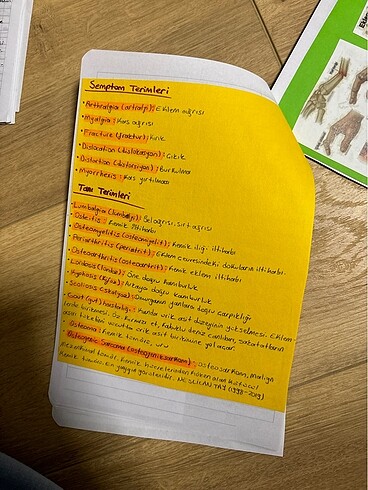 Semptom Terimleri
• Arthralgia (artralji): Eklem ağrısı
• Myalgia: Kas ağrısı
• Fracture (fraktur): Kırık
• Dislocation (dislokasyon): Çıkık
• Distortion (distorsiyon): Burkulma
• Myorrhexis: Kas yırtılması
Tanı Terimleri
• Lumbalgia (lumbalji): Bel ağrısı, sırt ağrısı
• Osteitis: Kemik iltihabı
• Osteomyelitis (osteomyelit): Kemik iliği iltihabı
• Periarthritis (periartrit): Eklem çevresindeki dokuların iltihabı.
• Osteoarthritis (osteoartrit): Kemik eklem iltihabı
• Lordosis (lordoz): Öne doğru kamburluk
• Kyphosis (kifoz): Arkaya doğru kamburluk
• Scoliosis (skolyoz): Omurganın yanlara doğru çarpıklığı
• Gout (gut) hastalığı: Kanda ürik asit düzeyinin yükselmesi. Eklem
lerde birikmesi. Bu, kırmızı et, kabuklu deniz canlıları, sakatatların
aşırı tüketimi vücutta ürik asit birikimine yol açar.
• Osteoma: Kemik tümörü, ur
• Osteogenic Sarcoma : osteosarkom, Malign
Mezenkimal tümör. Kemik hücrelerinden köken alan kötücül
Kemik tümörü. En yaygın görülenidir.